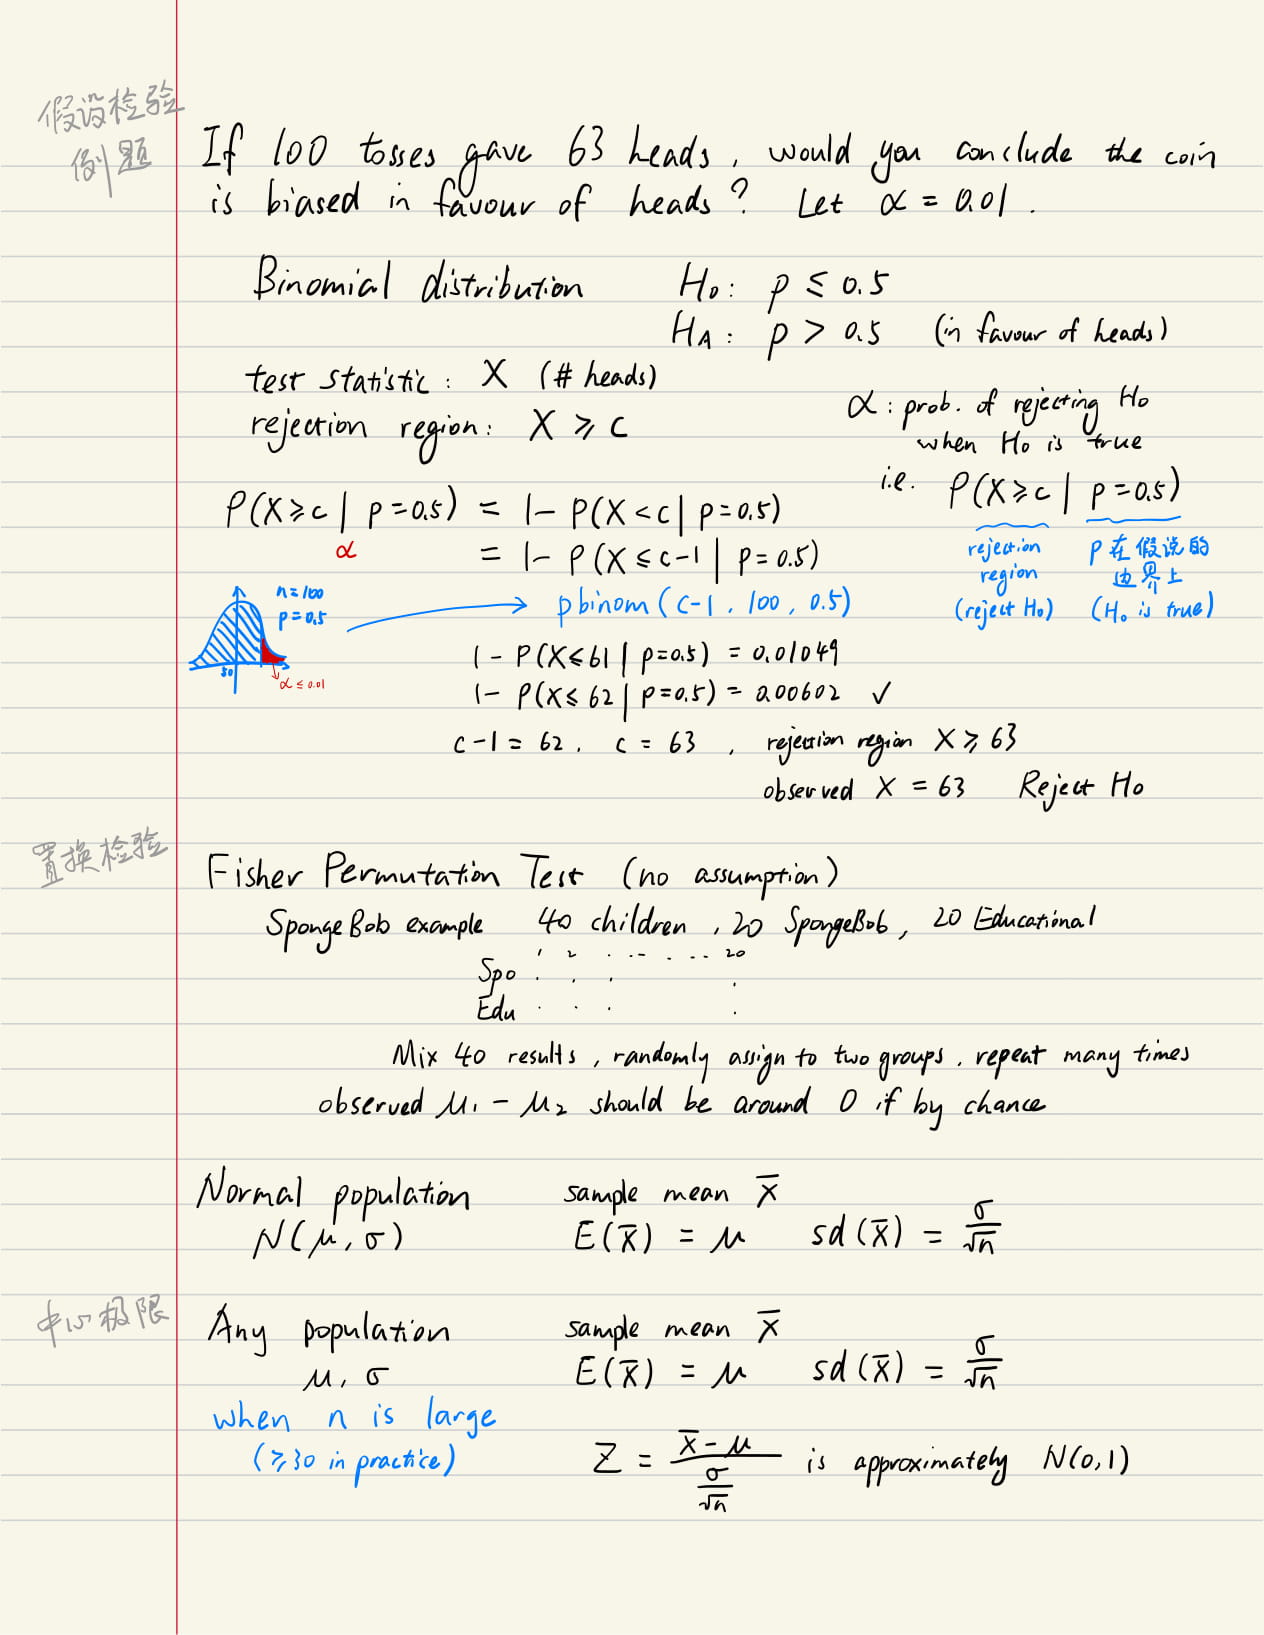 假设检验
例题
If 100 tosses gave 63 heads, would you conclude the coin
is biased in favour of heads? Let α = 0.01.
Binomial distribution H₀: p ≤ 0.5
H_A: p > 0.5 (in favour of heads)
test statistic: X (# heads)
rejection region: X ≥ c
α: prob. of rejecting H₀
when H₀ is true
i.e. P(X ≥ c | p = 0.5)
rejection
region
(reject H₀)
p在假说的
边界上
(H₀ is true)
P(X ≥ c | p = 0.5) = 1 - P(X < c | p = 0.5)
α
= 1 - P(X ≤ c-1 | p = 0.5)
n=100
p=0.5
50
α ≤ 0.01
pbinom(c-1, 100, 0.5)
1 - P(X ≤ 61 | p=0.5) = 0.01049
1 - P(X ≤ 62 | p=0.5) = 0.00602 ✓
c-1 = 62, c = 63, rejection region X ≥ 63
observed X = 63 Reject H₀
置换检验
Fisher Permutation Test (no assumption)
SpongeBob example 40 children, 20 SpongeBob, 20 Educational
1 2 . .. . ... 20
Spo . . . .
Edu . . . .
Mix 40 results, randomly assign to two groups, repeat many times
observed μ₁ - μ₂ should be around 0 if by chance
Normal population sample mean x̄
N(μ, σ) E(x̄) = μ sd(x̄) = σ/√n
中心极限
Any population sample mean x̄
μ, σ E(x̄) = μ sd(x̄) = σ/√n
when n is large
(≥30 in practice)
Z = (x̄ - μ)/(σ/√n) is approximately N(0,1)